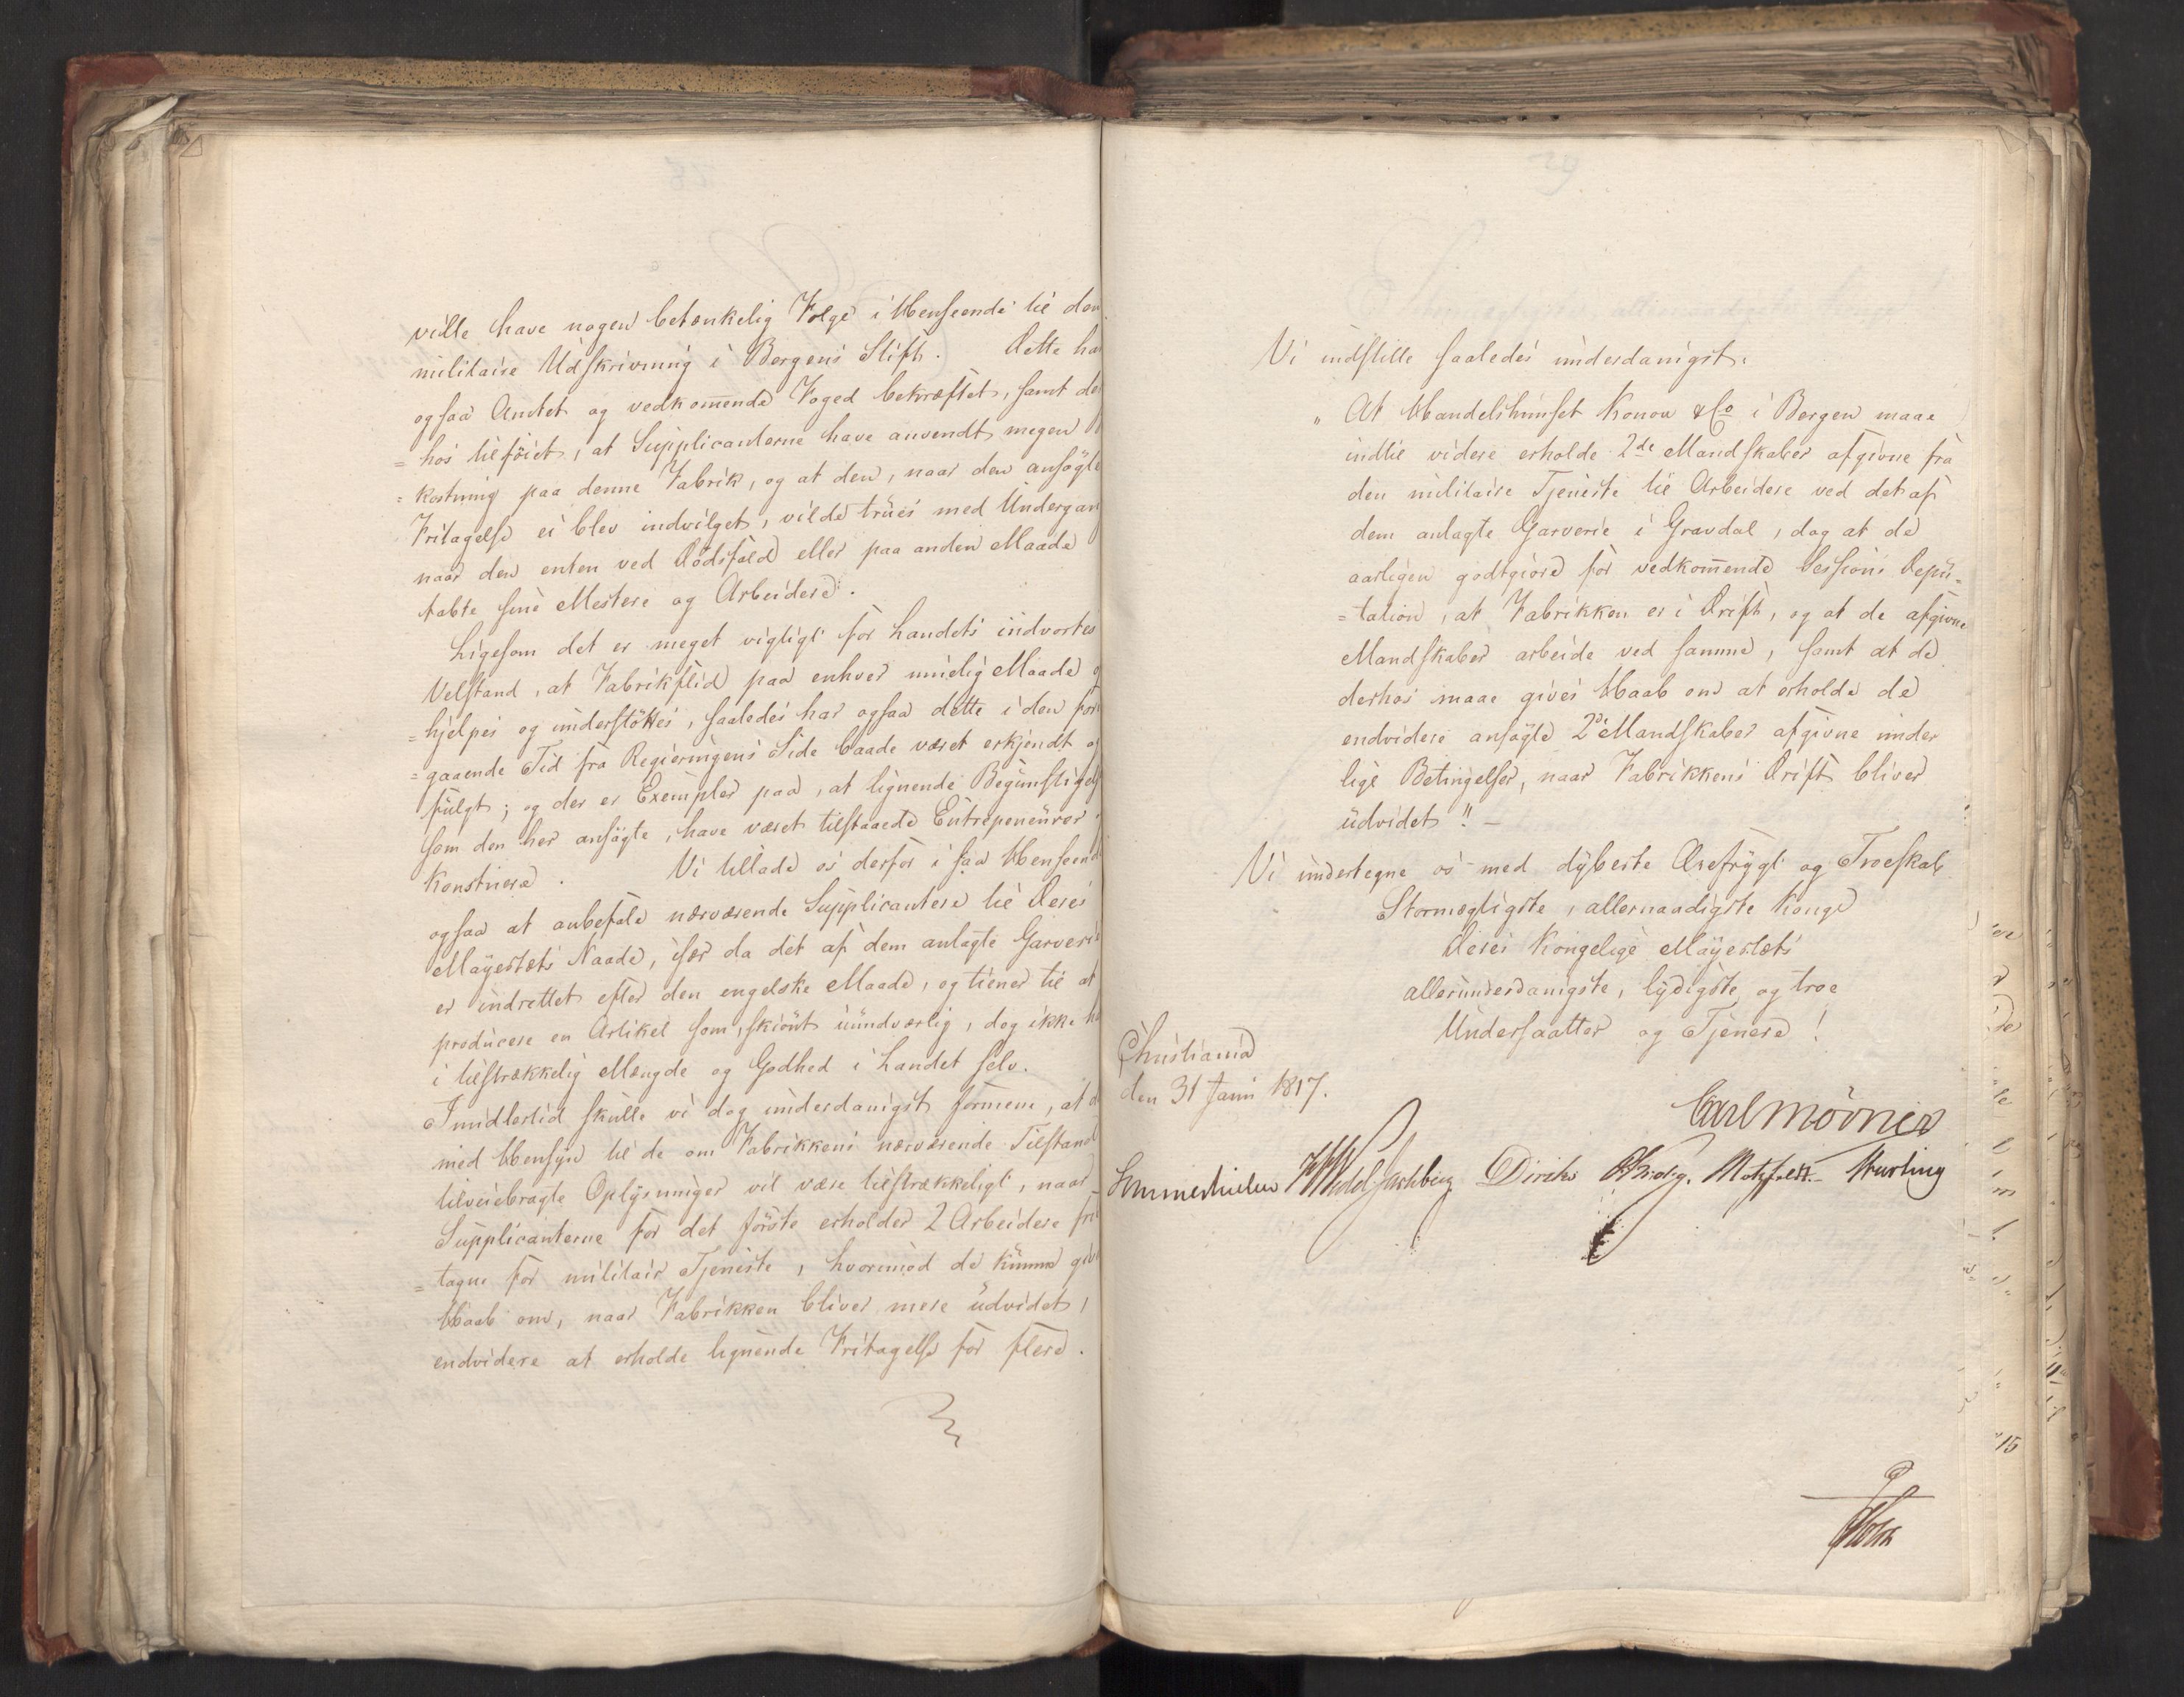 ville have nogen betænkelig Følge i Henseende til den
militaire Udskrivning i Bergens Stift. Dette har
ogsaa Amtet og vedkom̅ende Foged bekræftet, samt de
=hos tilføiet, at Supplicanterne have anvendt megen
=kostning paa denne Fabrik, og at den, naar den ansøgte
Fritagelse ei blev indvilget, vilde trues med Undergan
naar den enten ved Dødsfald eller paa anden Maade
tabte sine Mestere og Arbeidere.
Ligesom det er meget vigtigt for Landets indvortes
Velstand, at Fabrikflid paa enhver muelig Maade
=hjelpes og understøttes, saaledes har ogsaa dette i den for
=gaaende Tid fra Regieringens Side baade været erkjendt og
fulgt; og der er Exempler paa, at lignende Begunstigels
som den her ansøgte, have været tilstaaede Entrepeneurer
Konstnere. Vi tillade os derfor i saa Henseend
ogsaa at anbefale nærværende Supplicantere til Deres
Mayestæts Naade, især da det af dem anlagte Garverie
er indrettet efter den engelske Maade, og tiener til at
producere en Artikel som, skiønt uundværlig, dog ikke ha
i tilstrækkelig Mængde og Godhed i Landet selv.
Imidlertid skulle vi dog underdanigst formene, at d
med Hensyn til de om Fabrikkens nærværende Tilstand
tilveiebragte Oplysninger vil være tilstrækkeligt, naar
Supplicanterne for det første erholder 2 Arbeidere fri
=tagne for militair Tjeneste, hvorimod de kunne give
Haab om, naar Fabrikken bliver mere udvidet,
endvidere at erholde lignende Fritagelse for flere.
Vi indstille saaledes underdanigst:
„At Handelshuuset Konow & Co i Bergen maae
indtil videre erholde 2de Mandskaber afgivne fra
den militaire Tjeneste til Arbeidere ved det af
dem anlagte Garverie i Gravdal, dog at de
aarligen godtgiøre for vedkom̅ende Sessions Depu=
=tation, at Fabrikken er i Drift, og at de afgivne
Mandskaber arbeide ved samme, samt at de
derhos maae gives Haab om at erholde de
endvidere ansøgte 2de Mandskaber afgivne under
lige Betingelser, naar Fabrikkens Drift bliver
udvidet". –
Vi undertegne os med dybeste Ærefrygt og Troeskab
Stormægtigste, allernaadigste Konge
Deres Kongelige Mayestæts
allerunderdanigste, lydigste og troe
Undersaatter og Tjenere!
Christiania
den 31 Janu 1817.
Carl Mörner
Sommerhielm Wedel-Jarlsberg Diriks Krieg. Motzfeldt. Thurling
Holst